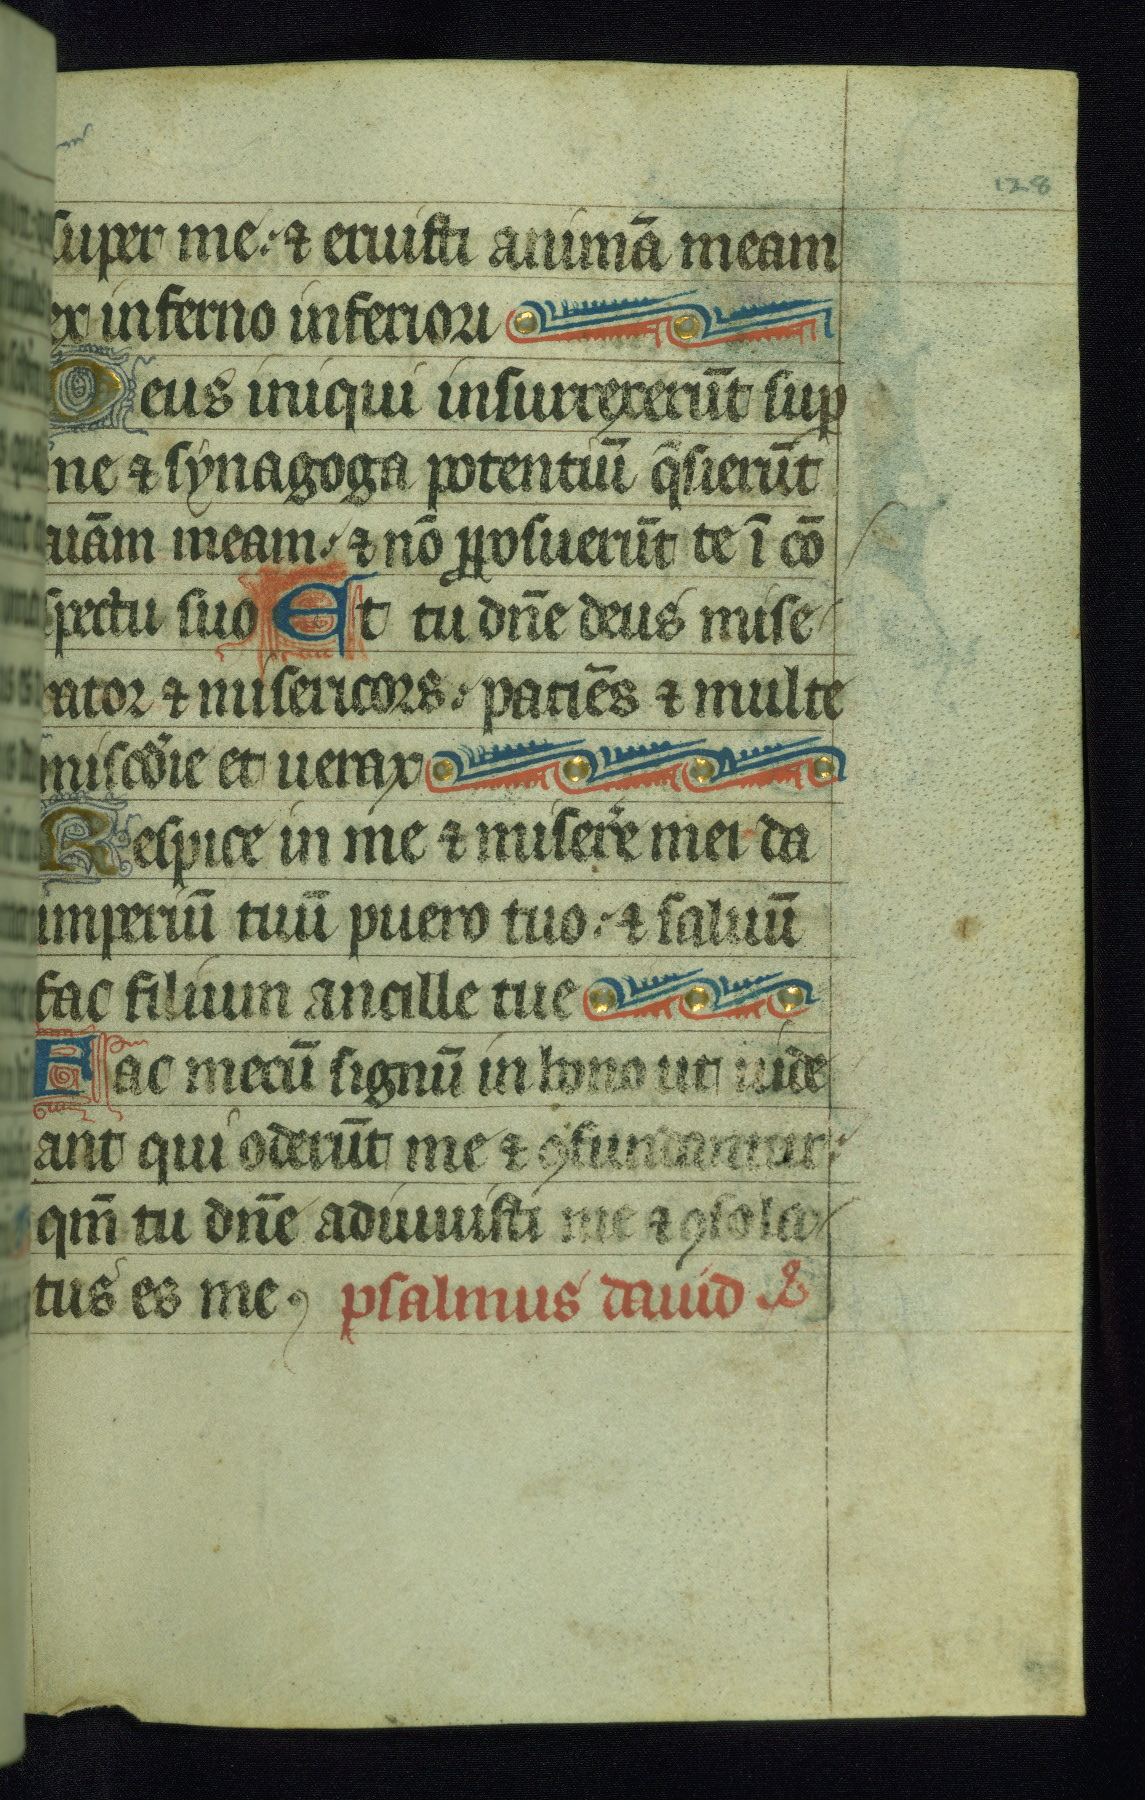 128
super me: ⁊ eruisti animā meam
ex inferno inferiori
Deus iniqui insurrexerūt suꝑ
me ⁊ synagoga potentiū q̄sierūt
aīam meam: ⁊ nō ꝓposuerūt te ī cō
spectu suo Et tu dn̄e deus mise
rator ⁊ misericors: patiēs ⁊ multe
miscd̄ie et uerax
Respice in me ⁊ miserēre mei da
imperiū tuū puero tuo: ⁊ saluū
fac filium ancille tue
Fac mecū signū in bono ut uide
ant qui oderūt me ⁊ ꝯfundantur:
qm̄ tu dn̄e adiuuisti me ⁊ ꝯsola
tus es me psalmus dauid